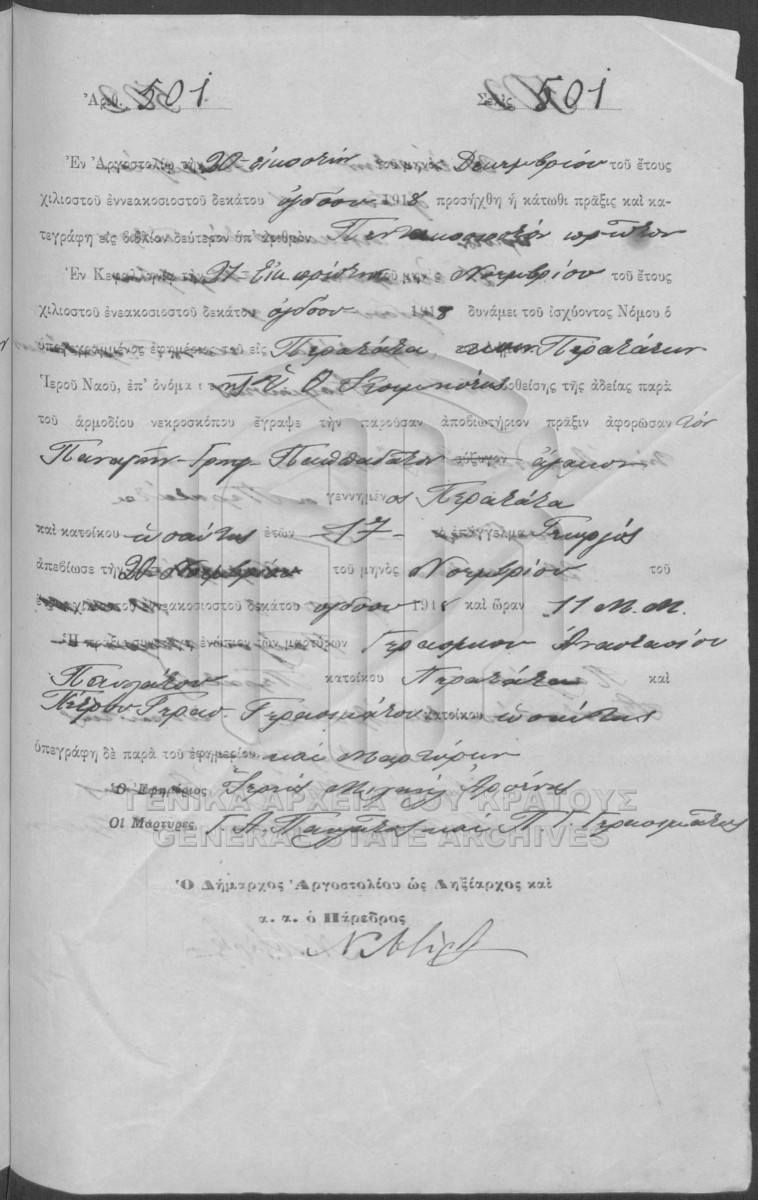 Ἀριθ. 501 Σελὶς 501
Ἐν Ἀργοστολίῳ τὴν 20 - εἰκοστὴν τοῦ μηνὸς Δεκεμβρίου τοῦ ἔτους
χιλιοστοῦ ἐννεακοσιοστοῦ δεκάτου ὀγδόου 1918 προσήχθη ἡ κάτωθι πρᾶξις καὶ κα-
τεγράφη εἰς βιβλίον δεύτερον ὑπ' ἀριθμὸν Πεντακοσιοστόν πρῶτον
Ἐν Κεφαλληνίᾳ τὴν 21 - τοῦ μηνὸς Νοεμβρίου τοῦ ἔτους
χιλιοστοῦ ἐνεακοσιοστοῦ δεκάτου ὀγδόου 1918 δυνάμει τοῦ ἰσχύοντος Νόμου ὁ
ὑπογεγραμμένος ἐφημέριος τοῦ εἰς Περατάτα, Περατάτων
Ἱεροῦ Ναοῦ, ἐπ' ὀνόματι τῆς Ὑ. Θ. Κοιμήσεως δοθείσης τῆς ἀδείας παρὰ
τοῦ ἁρμοδίου νεκροσκόπου ἔγραψε τὴν παροῦσαν ἀποβιωτήριον πρᾶξιν ἀφορῶσαν τὸν
Παναγῆν - Γρηγ. Παππαδάτον σύζυγον ἄγαμον
γεννημένος Περατάτα
καὶ κατοίκου ὡσαύτως ἐτῶν - 17 - τὸ ἐπάγγελμα Γεωργός
ἀπεβίωσε τὴν 20 τοῦ μηνὸς Νοεμβρίου τοῦ
χιλιοστοῦ ἐννεακοσιοστοῦ δεκάτου ὀγδόου 1918 καὶ ὥραν 11 Μ.Μ.
Ἡ πρᾶξις συνετάγη ἐνώπιον τῶν μαρτύρων Γερασίμου Ἀναστασίου
Παυλάτου κατοίκου Περατάτα καὶ
Πέτρου Γερασ. Γερασιμάτου κατοίκου ὡσαύτως
ὑπεγράφη δὲ παρὰ τοῦ ἐφημερίου καὶ Μαρτύρων
Ὁ Ἐφημέριος Ἱερεὺς Μιχαὴλ
Οἱ Μάρτυρες Γ. Α. Παυλᾶτος καὶ Π. Γ. Γερασιμᾶτος
ΓΕΝΙΚΑ ΑΡΧΕΙΑ ΤΟΥ ΚΡΑΤΟΥΣ
GENERAL STATE ARCHIVES
Ὁ Δήμαρχος Ἀργοστολίου ὡς Ληξίαρχος καὶ
α. α. ὁ Πάρεδρος